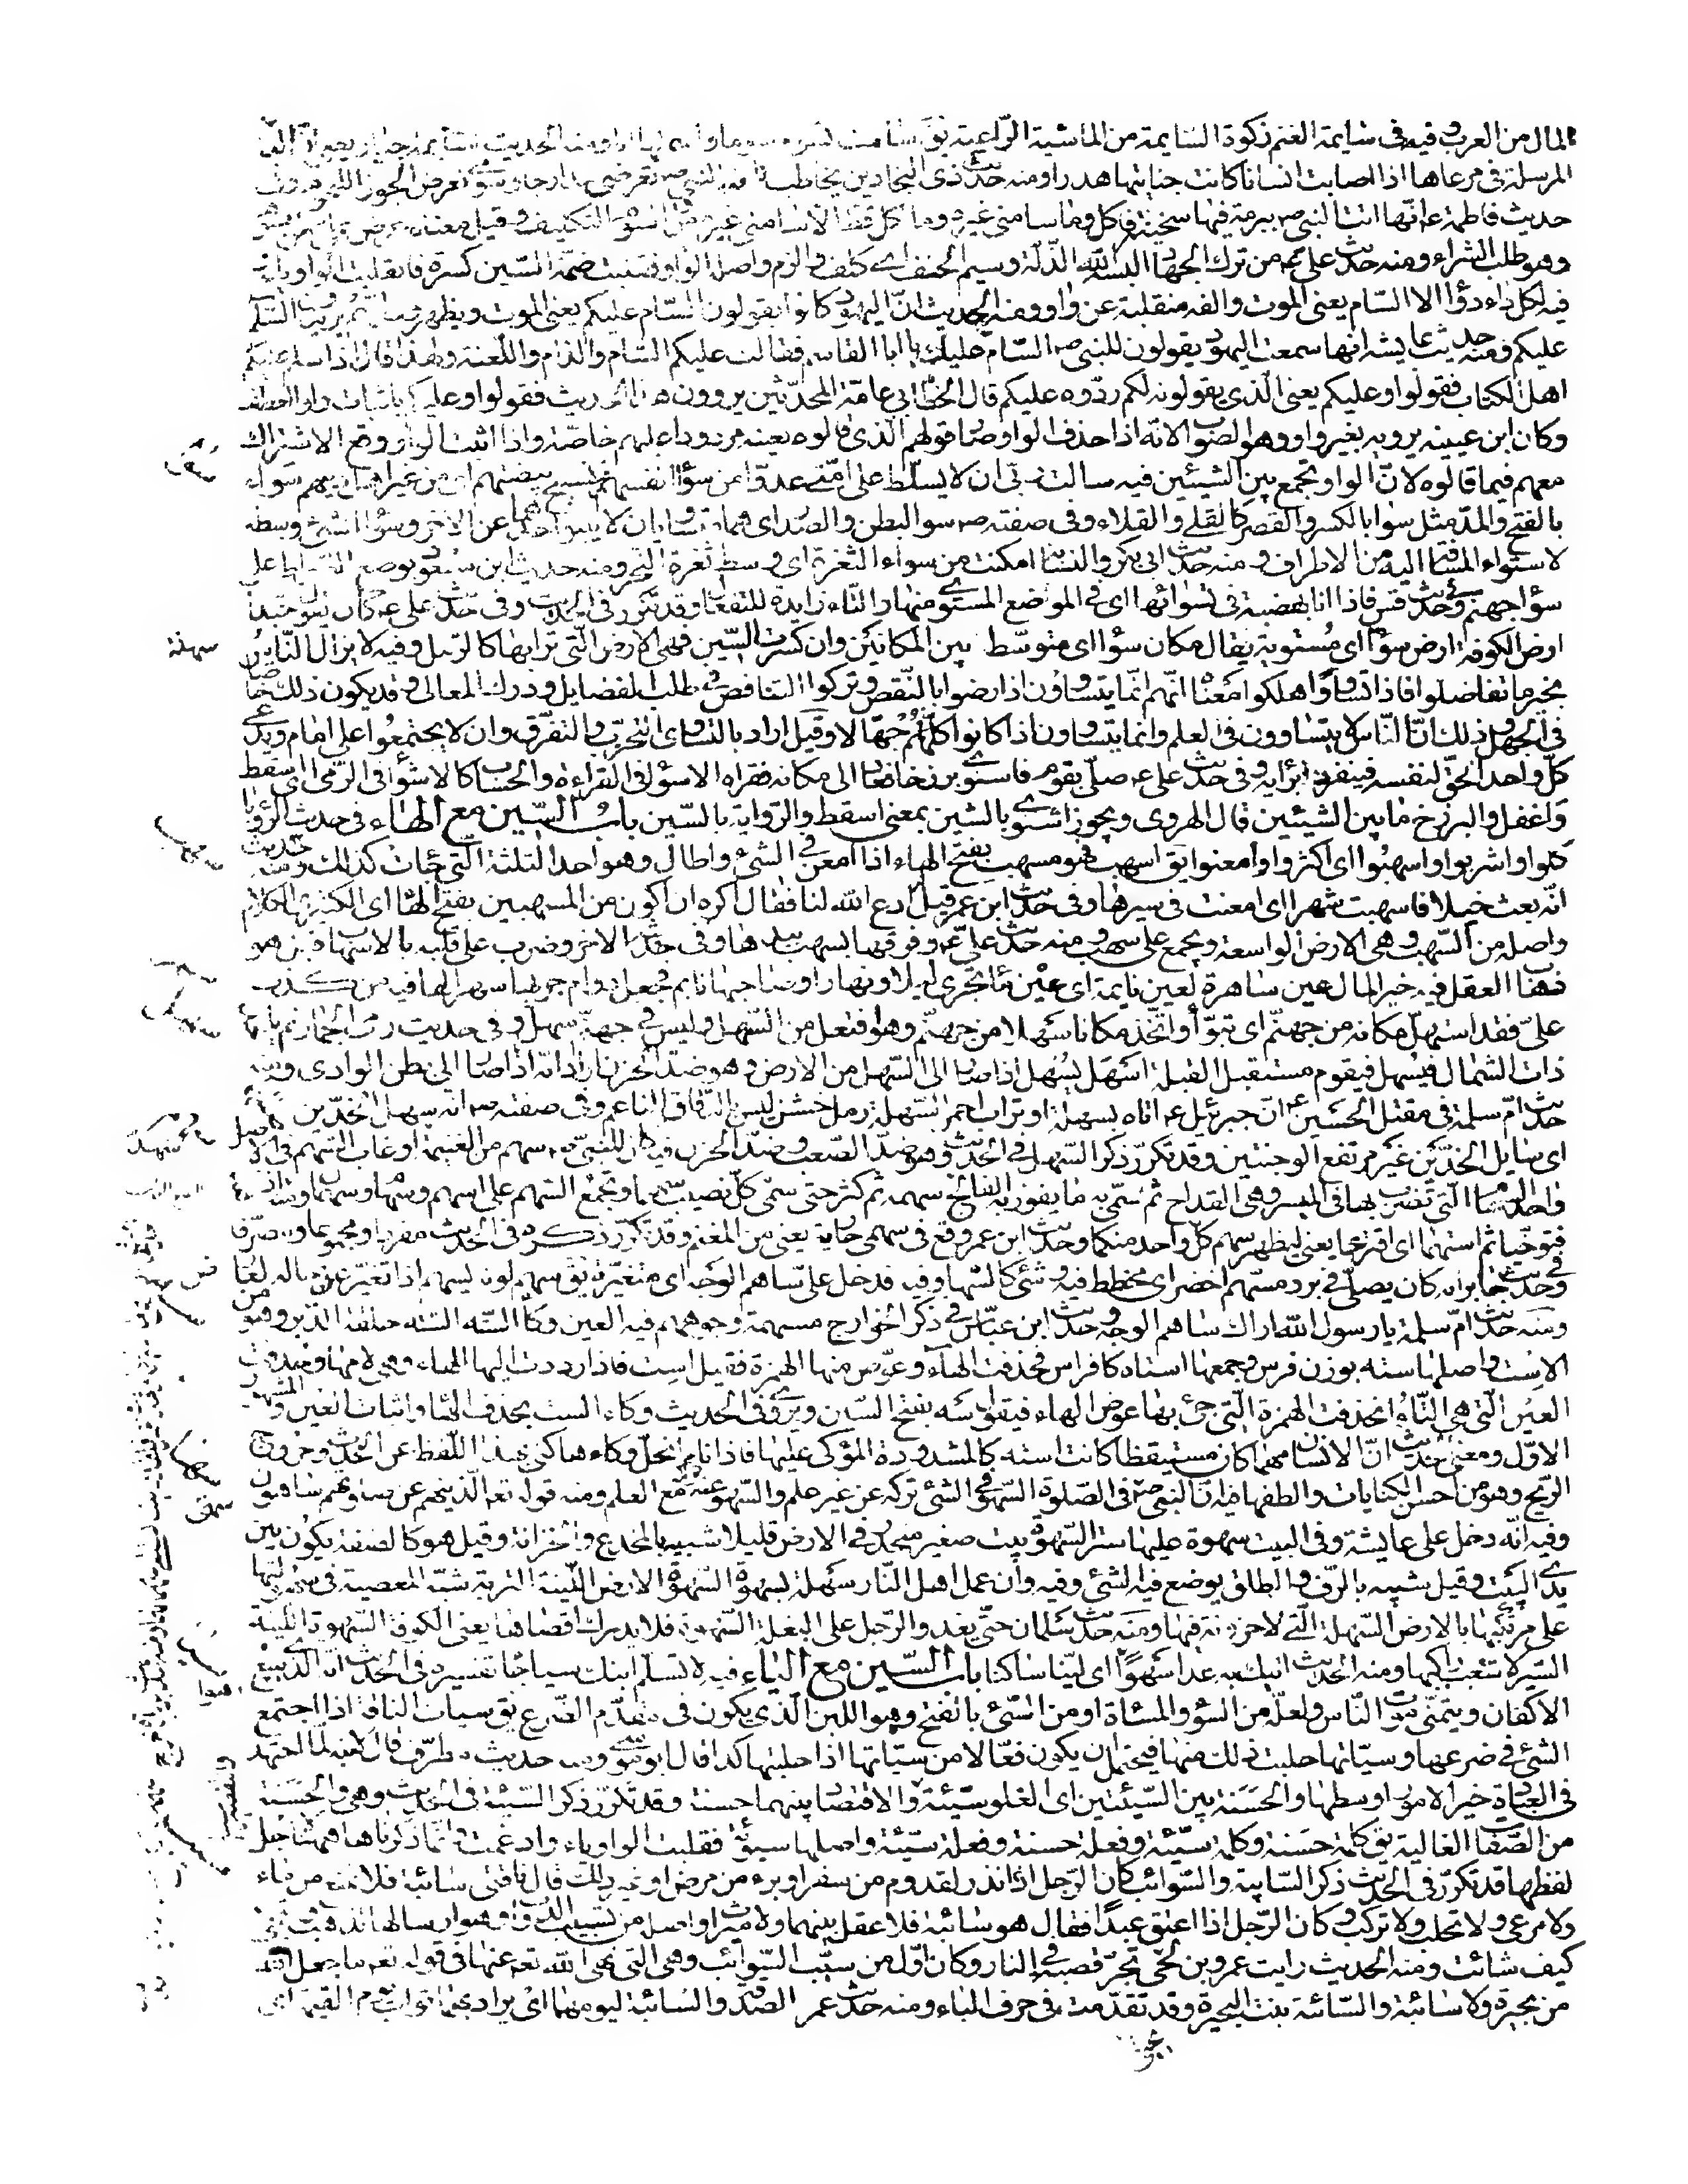 المال من العرب وفيه فى سايمة الغنم زكوة السايمة من الماشية الراعية يق سامت
المرسلة فى مرعاها اذا اصابت انسانا كانت جنايتها هدرا ومنه حديث ذى البجادين يخاطب ناقة النبى ص تعرضى مدارجا وسومى تعرض الجوزا للنجوم وفى
حديث فاطمة ع انها اتت النبى ص ببرمة فيها سخينة فاكل وما سامنى غيره وما اكل قط الا سامنى غيره هو من السوم التكليف وقيل معناه عرض على من السوم
وهو طلب الشراء ومنه حديث على ع من ترك الجهاد البسه الله الذلة وسيم الخسف اى كلف والزم واصله الواو فقلبت ضمة السين كسرة فانقلبت الواو ياء
فيه لكل داء دواء الا السام يعنى الموت والفه منقلبة عن واو ومنه الحديث ان اليهود كانوا يقولون السام عليكم يعنى الموت ويظهرون انهم يريدون السلم
عليكم ومنه حديث عايشه انها سمعت اليهود يقولون للنبى ص السام عليك يا ابا القاسم فقالت عليكم السام والذام واللعنة ولهذا قال اذا سلم عليكم
اهل الكتاب فقولوا وعليكم يعنى الذى يقولونه لكم ردوه عليكم قال الخطابى عامة المحدثين يروون هذا الحديث فقولوا وعليكم باثبات واو العطف
وكان ابن عيينه يرويه بغير واو وهو الصواب لانه اذا حذف الواو صار قولهم الذى قالوه بعينه مردودا عليهم خاصة واذا اثبت الواو وقع الاشتراك
معهم فيما قالوه لان الواو تجمع بين الشيئين فيه سالت ربى ان لا يسلط على امتى عدوا من سوا انفسهم فيستبيح بيضتهم اى من غير اهل دينهم سواء
بالفتح والمد مثل سوا بالكسر والقصر كالقلى والقلاء وفى صفته ص سوا البطن والصدر اى هما متساويان لا ينبوا احدهما عن الاخر وسوا الشئ وسطه
لاستواء المسافة اليه من الاطراف ومنه حديث ابى بكر والنسابة امكنت من سواء الثغرة اى وسط ثغرة النحر ومنه حديث ابن مسعود يوضع الصراط على
سوا جهنم وفى حديث قس فاذا انا بهضبة فى تسوائها اى فى الموضع المستوى منها والتاء زايدة للتفعال وقد تكرر فى الحديث وفى حديث على ع كان يقول حبذا
ارض الكوفة ارض سوا اى مستوية يقال مكان سوا اى متوسط بين المكانين وان كسرت السين فهى الارض التى ترابها كالرمل وفيه لا يزال الناس
بخير ما تفاضلوا فاذا تساووا هلكوا معناه انهم انما يتساوون اذا رضوا بالنقص وتركوا التنافس فى طلب الفضايل ودرك المعالى وقد يكون ذلك خاصا
فى الجهل وذلك ان الناس لا يتساوون فى العلم وانما يتساوون اذا كانوا كلهم جهالا وقيل اراد بالتساوى التحزب والتفرق وان لا يجتمعوا على امام ويدعى
كل واحد الحق لنفسه فينفرد برايه وفى حديث على ع صلى بقوم فاسوى برزخا فعاد الى مكانه فقراه الاسوا فى القراءة والحساب كالاشوا فى الرمى اى اسقط
واغفل والبرزخ ما بين الشيئين قال الهروى ويجوز اشوى بالشين بمعنى اسقط والرواية بالسين باب السين مع الهاء فى حديث الرؤيا
كلوا واشربوا واسهبوا اى اكثروا وامعنوا يق اسهب فهو مسهب بفتح الهاء اذا امعن فى الشئ واطال وهو احد الثلثة التى جات كذلك ومنه حديث
انه بعث خيلا فاسهبت شهرا اى امعنت فى سيرها وفى حديث ابن عمر قيل له ادع الله لنا فقال اكره ان اكون من المسهبين بفتح الهاء اى الكثيرى الكلام
واصله من السهب وهى الارض الواسعة ويجمع على سهب ومنه حديث على ع وفرقها بسهب بيدها وفى حديثه الاخر وضرب على قلبه بالاسهاب قيل هو
ذهاب العقل فيه خير المال عين ساهرة لعين نايمة اى عين ما تجرى ليلا ونهارا وصاحبها نايم فجعل دوام جريها سهرا لها فيه من كذب
على فقد استهل مكانه من جهنم اى تبوا واتخذ مكانا سهلا من جهنم وهو افتعل من السهل وليس فى جهنم سهل وفى حديث رمى الجمار ثم ياخذ
ذات الشمال فيسهل فيقوم مستقبل القبلة اسهل يسهل اذا صار الى السهل من الارض وهو ضد الحزن اراد انه اذا صار الى بطن الوادى ومنه
حديث ام سلمة فى مقتل الحسين ع ان جبرئيل ع اتاه بسهلة او تراب احمر السهلة رمل خشن ليس بالدقاق الناعم وفى صفته ص انه سهل الخدين
اى سايل الخدين غير مرتفع الوجنتين وقد تكرر ذكر السهل فى الحديث وهو ضد الصعب وضد الحزن فيه كان للنبى ص سهم من الغنيمة او غاب السهم فى الاصل
واحد السهام التى تضرب بها فى الميسر وهى القداح ثم سمى به ما يفوز به الفالج سهمه ثم كثر حتى سمى كل نصيب سهما وتجمع السهم على اسهم وسهام وسهمان ومنه
فتوخيا ثم استهما اى اقترعا يعنى ليظهر سهم كل واحد منكما وحديث ابن عمر وقع فى سهمى جارية يعنى من المغنم وقد تكرر ذكره فى الحديث مفردا ومجموعا ومصرفا
وفى حديث جابر انه كان يصلى فى برد مسهم اخضر اى مخطط فيه وشئ كالسهام وفيه فدخل على ساهم الوجه اى متغيرة يق سهم لونه يسهم اذا تغير عن حاله لعارض
ومنه حديث ام سلمة يا رسول الله اراك ساهم الوجه وحديث ابن عباس فى ذكر الخوارج مسهمة وجوههم فيه العين وكاء السه السته حلقة الدبر وهو من
الاست واصلها سته بوزن فرس وجمعها استاه كافراس فحذفت الهاء وعوض منها الهمزة فقيل است فاذا رددت اليها الهاء وهى لامها وحذفت
العين التى هى التاء انحذفت الهمزة التى جئ بها عوض الهاء فيقول سه بفتح السين ويروى فى الحديث وكاء الست بحذف الهاء واثبات العين والمشهور
الاول ومعنى الحديث ان الانسان مهما كان مستيقظا كانت استه كالمشدودة الموكى عليها فاذا نام انحل وكاءها كنى بهذا اللفظ عن الحدث وخروج
الريح وهو من احسن الكنايات والطفها فيه ان النبى ص سهى فى الصلوة السهو فى الشئ تركه عن غير علم والسهو عنه تركه مع العلم ومنه قوله تعالى الذين هم عن صلوتهم ساهون
وفيه انه دخل على عايشة وفى البيت سهوة عليها ستر السهوة بيت صغير منحدر فى الارض قليلا شبيه بالمخدع والخزانة وقيل هو كالصفة يكون بين
يدى البيت وقيل شبيه بالرف والطاق يوضع فيه الشئ وفيه وان عمل اهل النار سهلة بسهوة السهوة الارض اللينة التربة شبه المعصية فى سهولتها
على مرتكبها بالارض السهلة التى لا حزونة فيها ومنه حديث سلمان حتى يغدو الرجل على البغلة السهوة فلا يدرك اقصاها يعنى الكوفة السهوة اللينة
السير لا تتعب راكبها ومنه الحديث اتيك به غدا سهوا اى لينا ساكنا باب السين مع الياء فيه لا تسلم ابنك سياءا جاء تفسيره فى الحديث انه الذى يبيع
الاكفان ويتمنى موت الناس ولعله من السوء والمساءة او من السئ بالفتح وهو اللبن الذى يكون فى مقدم الضرع يق سيات الناقة اذا اجتمع
الشئ فى ضرعها وسياتها حلبت ذلك منها فيحتمل ان يكون فعالا من سياتها اذا حلبتها كذا قال ابو موسى ومنه حديث مطرف قال لابنه لما اجتهد
فى العبادة خير الامور اوسطها والحسنة بين السيئتين اى الغلو سيئة والاقتصار بينهما حسنة وقد تكرر ذكر السيئة فى الحديث وهى والحسنة
من الصفات الغالبة يق كلمة حسنة وكلمة سيئة وفعلة حسنة وفعلة سيئة واصلها سيوئة فقلبت الواو ياء وادغمت وانما ذكرناها هنا لاجل
لفظها قد تكرر فى الحديث ذكر السايبة والسوائب كان الرجل اذا نذر لقدوم من سفر او برء من مرض او غير ذلك قال ناقتى سائبة فلا تمنع من ماء
ولا مرعى ولا تحلب ولا تركب وكان الرجل اذا اعتق عبدا فقال هو سائبة فلا عقل بينهما ولا ميراث واصله من تسييب الدواب وهو ارسالها تذهب وتجئ
كيف شائت ومنه الحديث رايت عمرو بن لحى يجر قصبه فى النار وكان اول من سيب السوائب وهى التى نهى الله تعالى عنها فى قوله تعالى ما جعل الله
من بحيرة ولا سائبة والسائبة بنت البحيرة وقد تقدمت فى حرف الباء ومنه حديث عمر الصدقة والسائبة ليومهما اى يراد بهما ثواب يوم القيمة اى